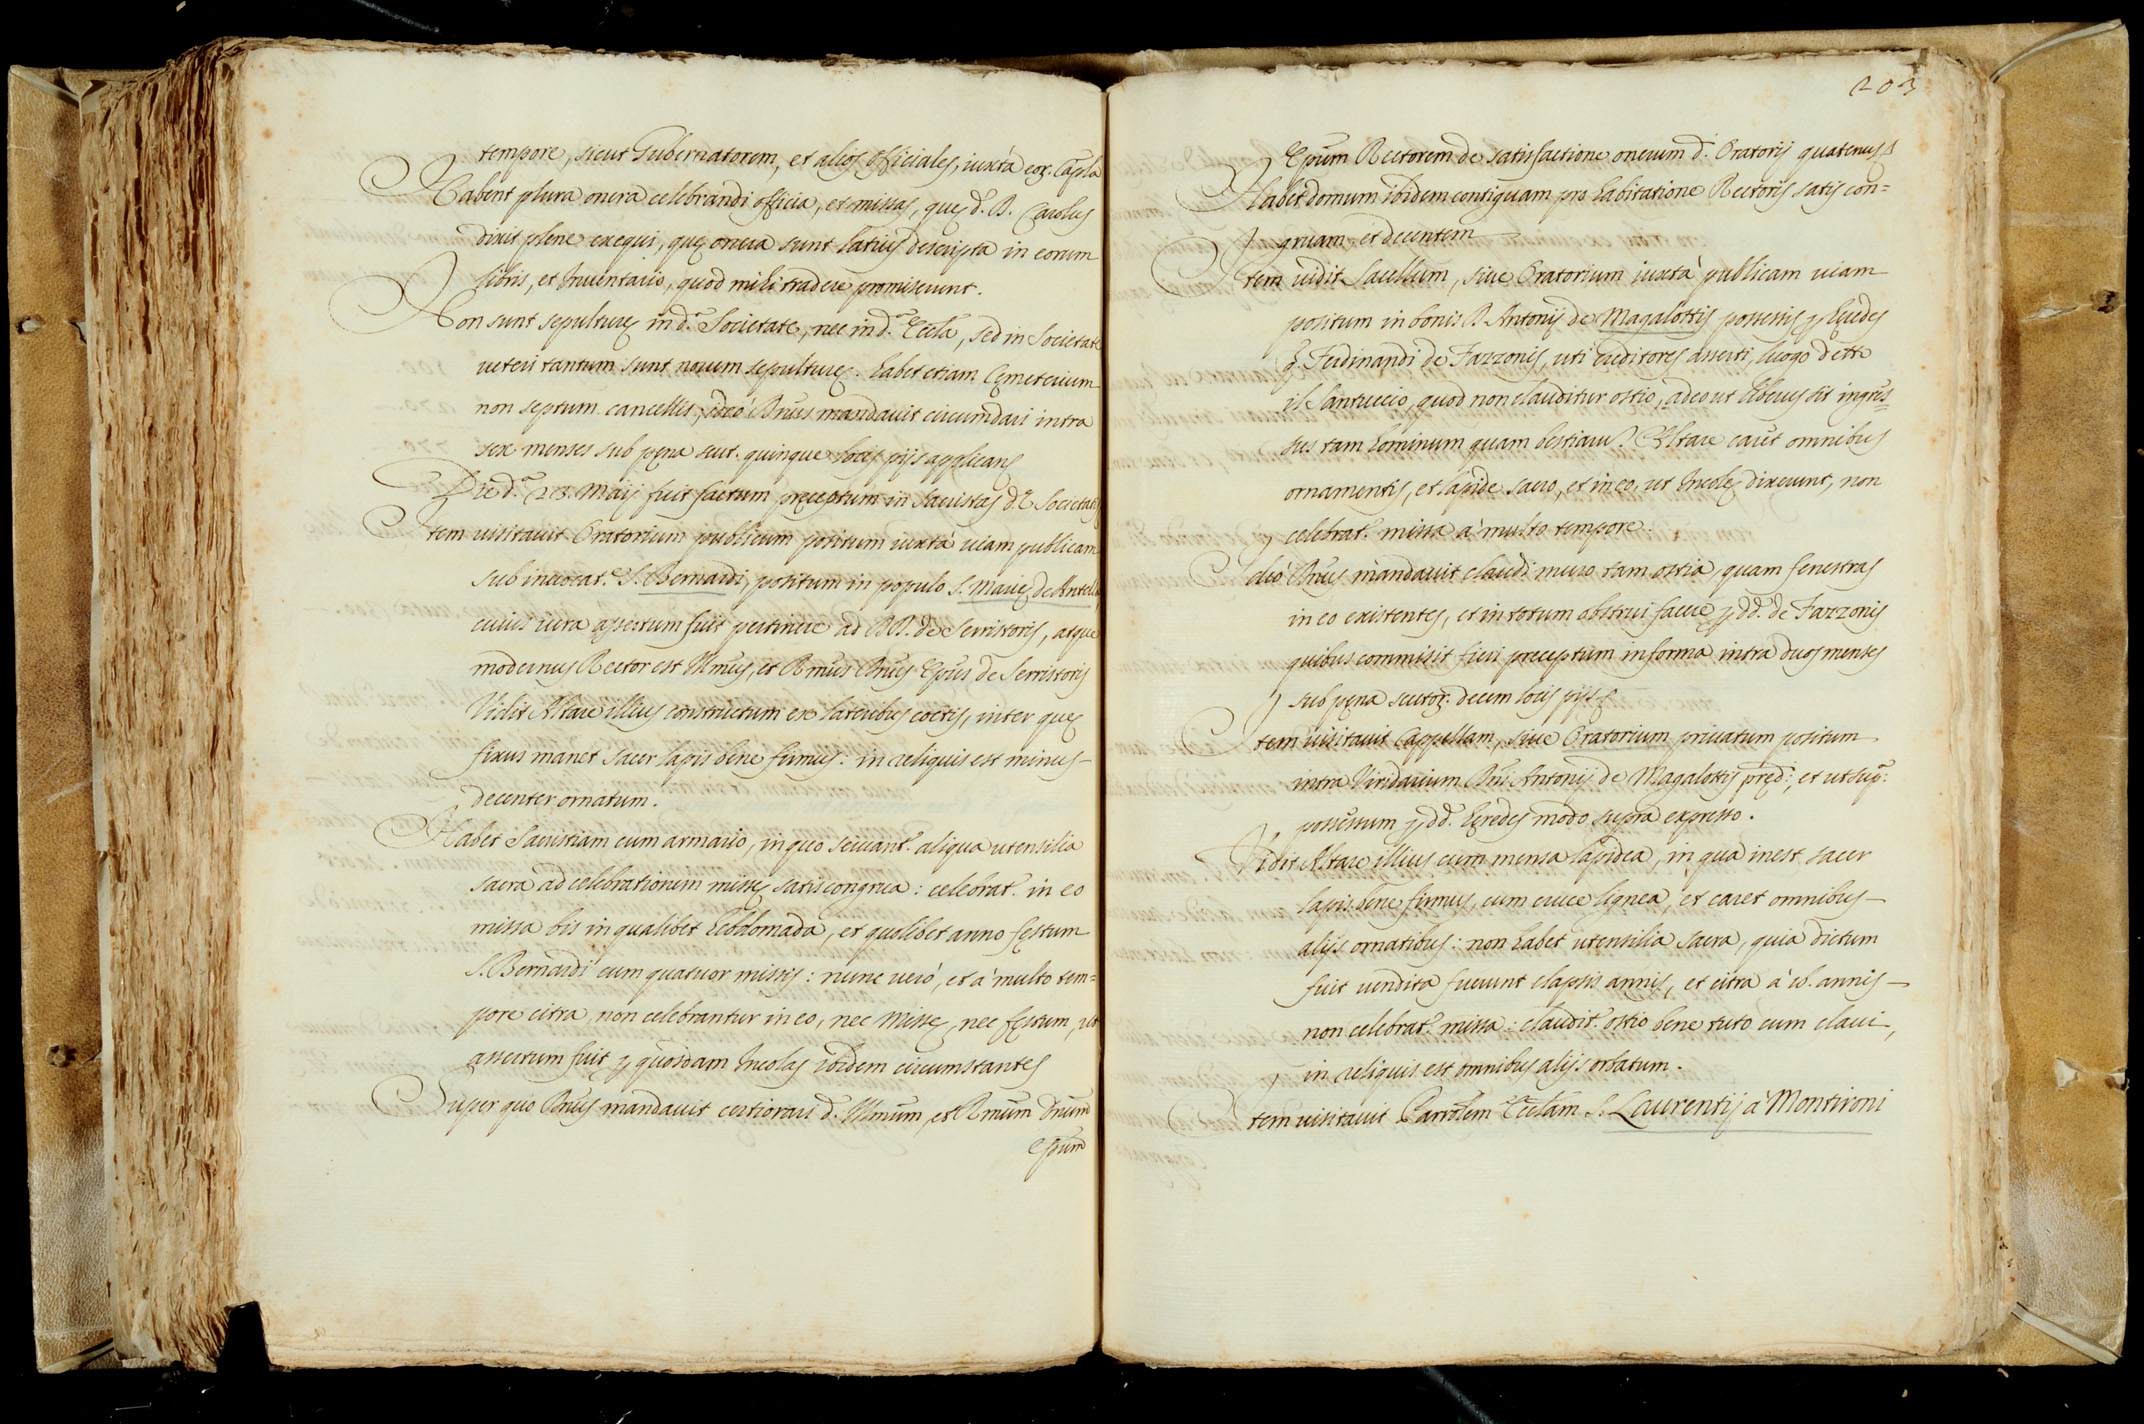 tempore, sicut Gubernatorem, et alios officiales, iuxtà eor. Capla
Habent plura onera celebrandi officia, et missas, quę d. D. Carolus
dixit plene exequi, quę onera sunt latius descripta in eorum
libris, et Inventario, quod mihi tradere promiserunt.
Non sunt sepulturę in d.ª Societate, nec in d.ª Eccla, sed in Societate
veteri tantum sunt novem sepulturę. habet etiam Cęmeterium
non septum cancellis, ideò Dnus mandavit circumdari intra
sex menses sub pęna scut. quinque locis pijs applicans
Die d.ª 28. Maij fuit factum pręceptum in Sacristas d.ę Societatis
Item visitavit Oratorium publicum positum iuxtà viam publicam
sub invocat.e S. Bernardi, positum in populo S. Marię de Antella,
cuius iura assertum fuit pertinere ad DD. de Serristoris, atque
modernus Rector est Illmus, et Rmus Dnus Epus de Serristoris
Vidit Altare illius constructum ex lateribus coctis, inter quę
fixus manet sacer lapis bene firmus: in reliquis est minus
decenter ornatum.
Habet Sacristiam cum armario, in quo servant. aliqua utensilia
sacra ad celebrationem missę satis congrua: celebrat. in eo
missa bis in qualibet hebdomada, et quolibet anno festum
S. Bernardi cum quatuor missis: nunc verò, et à multo tem=
pore citra, non celebrantur in eo, nec Missę, nec festum, ut
assertum fuit p quosdam Incolas ibidem circumstantes
Super quo Dnus mandavit certiorari d. Illmum, et Rmum Dnum
Epum
203
Epum Rectorem de satisfactione onerum d. Oratorij quatenus
Habet domum ibidem contiguam pro habitatione Rectoris satis con=
gruam et decentem
Item vidit Sacellum, sive Oratorium iuxtà publicam viam
positum in bonis D. Antonij de Magalottis possessis p hęredes
q. Ferdinandi de Fazzonis, uti creditores asserti, luogo detto
il Santuccio, quod non clauditur ostio, adeo ut liberus sit ingres=
sus tam hominum quam bestiaru. Altare caret omnibus
ornamentis, et lapide sacro, et in eo, ut Incolę dixerunt, non
celebrat. missa à multo tempore.
Ideò Dnus mandavit claudi muro tam ostia, quam fenestras
in eo existentes, et in totum obstrui facere p dd. de Fazzonis
quibus commisit fieri preceptum in forma intra duos menses
sub pęna scutor. decem locis pijs
Item visitavit Cappellam, sive Oratorium privatum positum
intra Viridarium Dni Antonij de Magalottis pręd., et ut sup.
possessum p dd. hęredes modo supra expresso.
Vidit Altare illius cum mensa lapidea, in qua inest sacer
lapis bene firmus, cum cruce lignea, et caret omnibus
alijs ornatibus: non habet utensilia sacra, quia dictum
fuit vendita fuerunt elapsis annis, et citra à annis
non celebrat. missa: claudit. ostio bene tuto cum clavi,
in reliquis est omnibus alijs orbatum.
Item visitavit Parrolem Ecclam S. Laurentij à Montironi